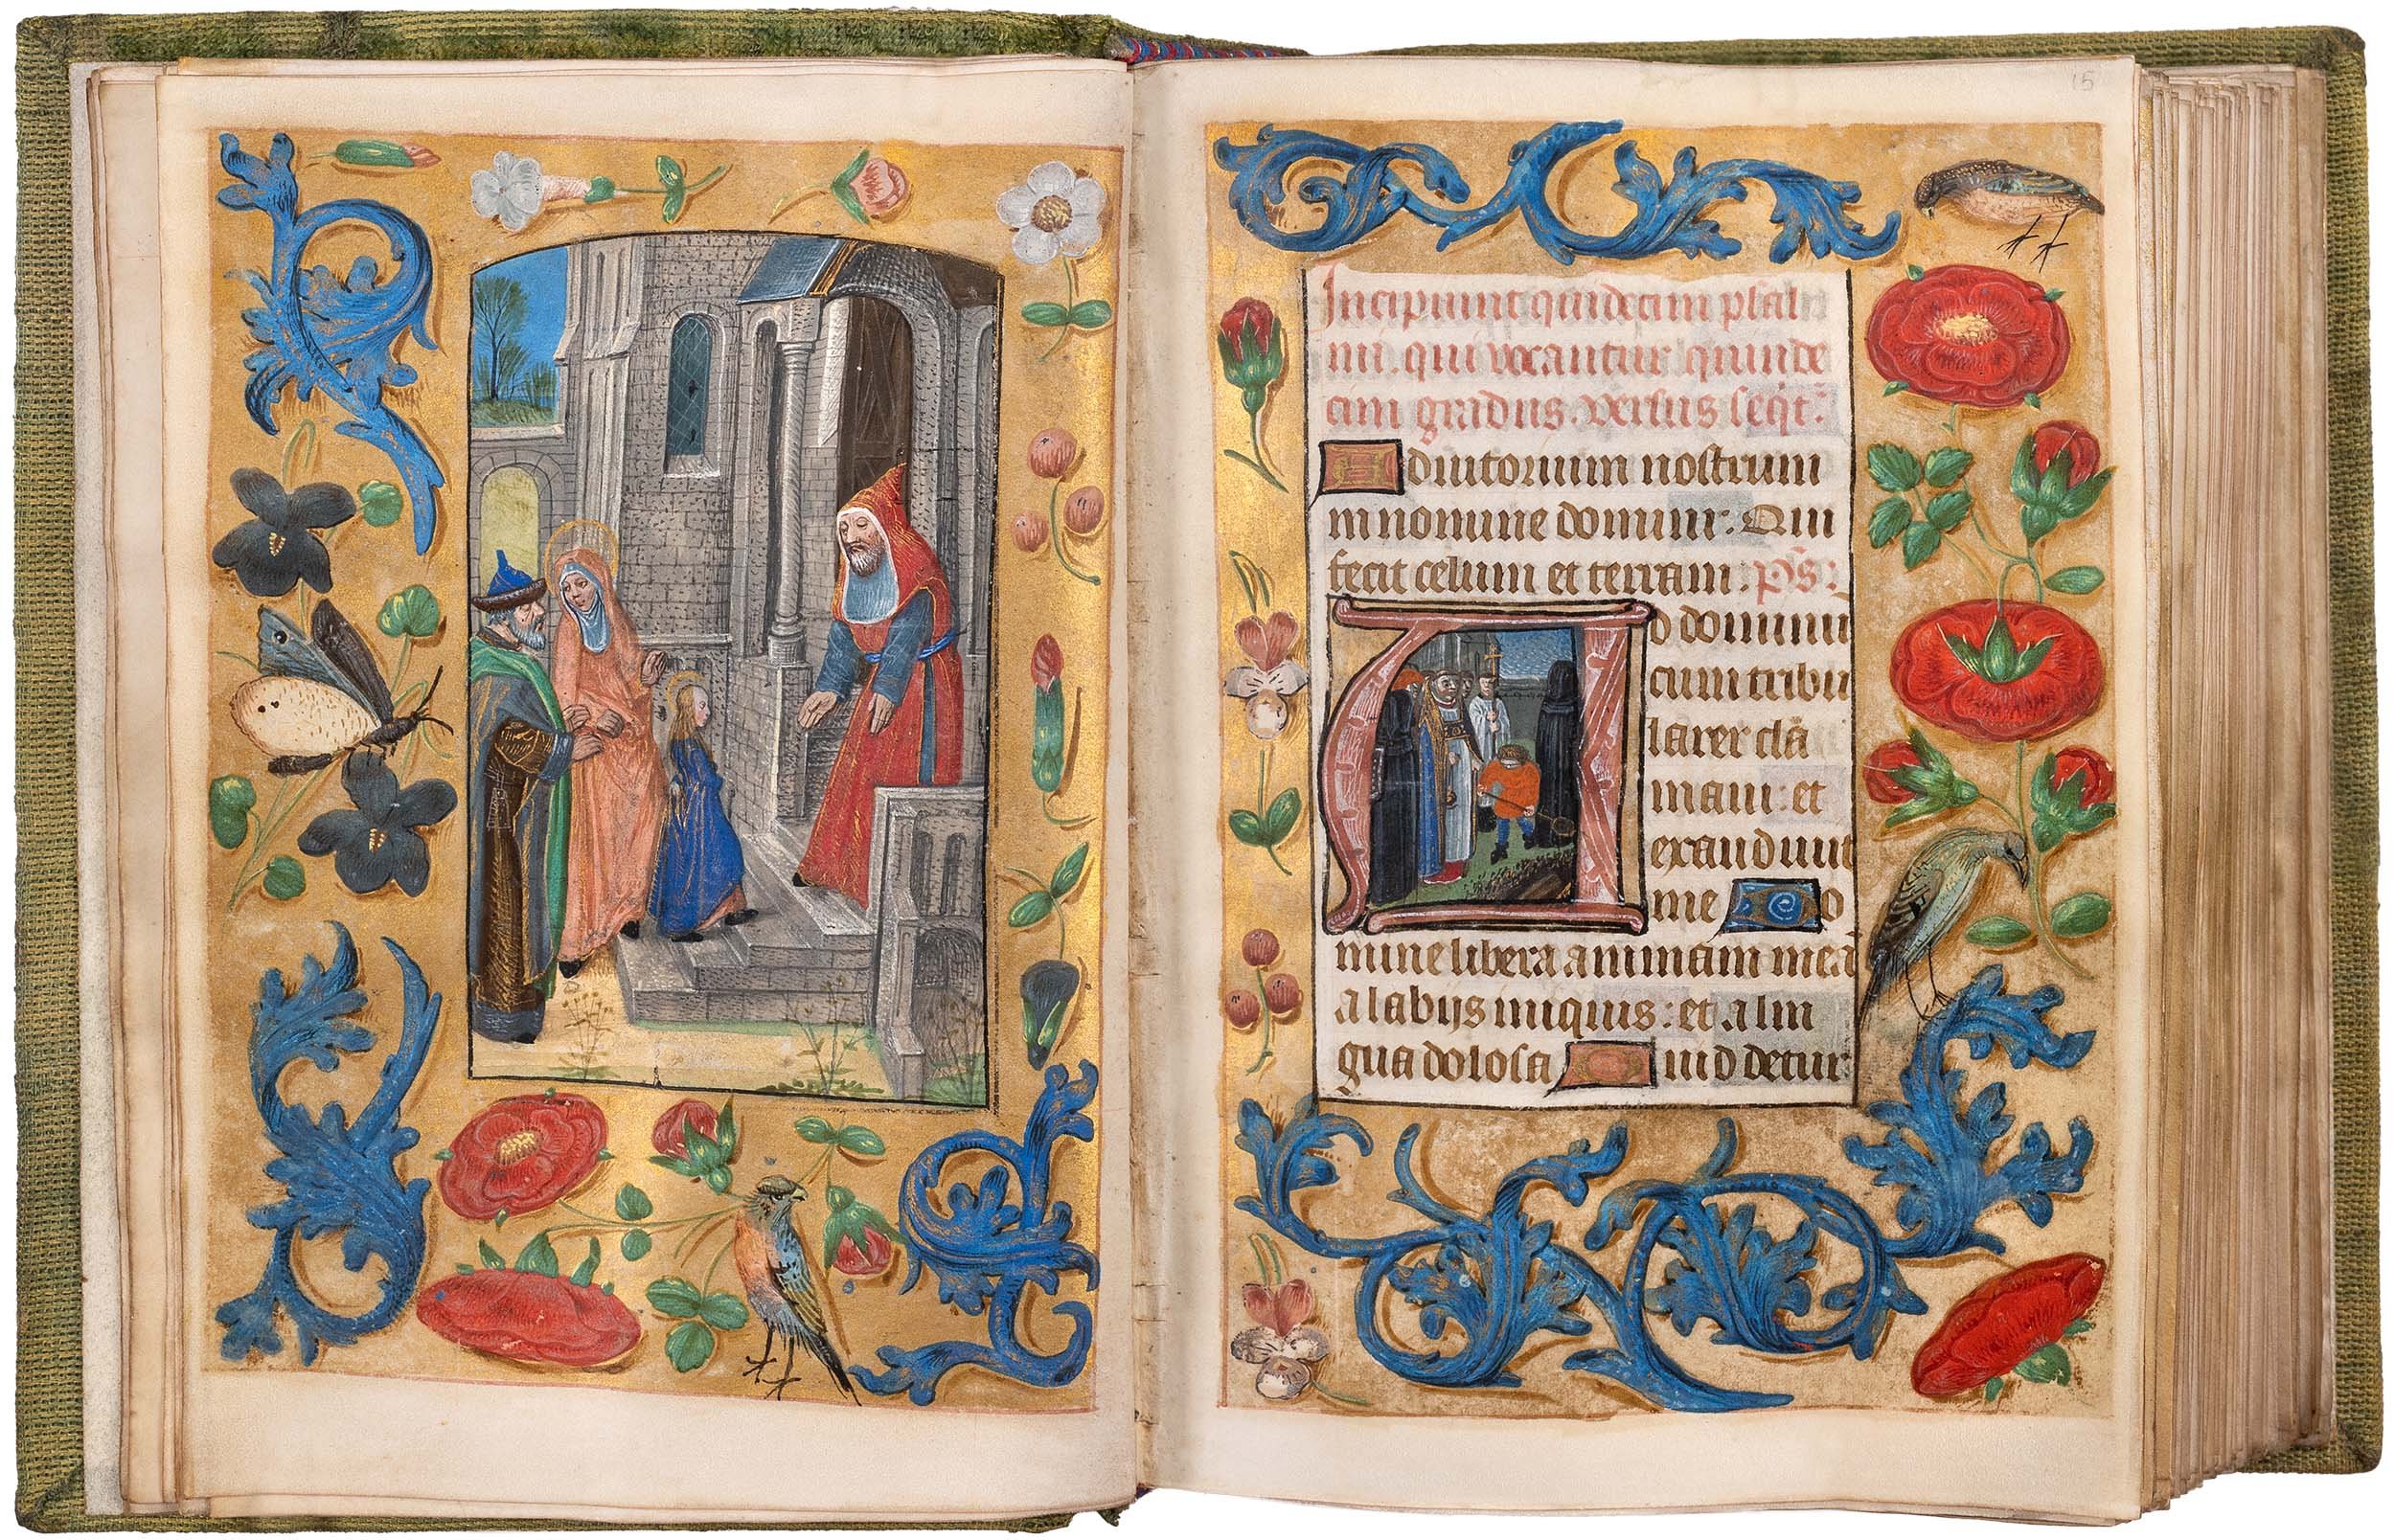 15
Incipiunt quidecim psal
mi. qui vocantur quinde
cim gradus. versus seqt:
Adiutorium nostrum
in nomine domini. Qui
fecit celum et terram. ps:
Ad dominu
cum tribu
larer cla
maui: et
exaudiuit
me Do
mine libera animam mea
a labijs iniquis: et a lin
gua dolosa Quid detur